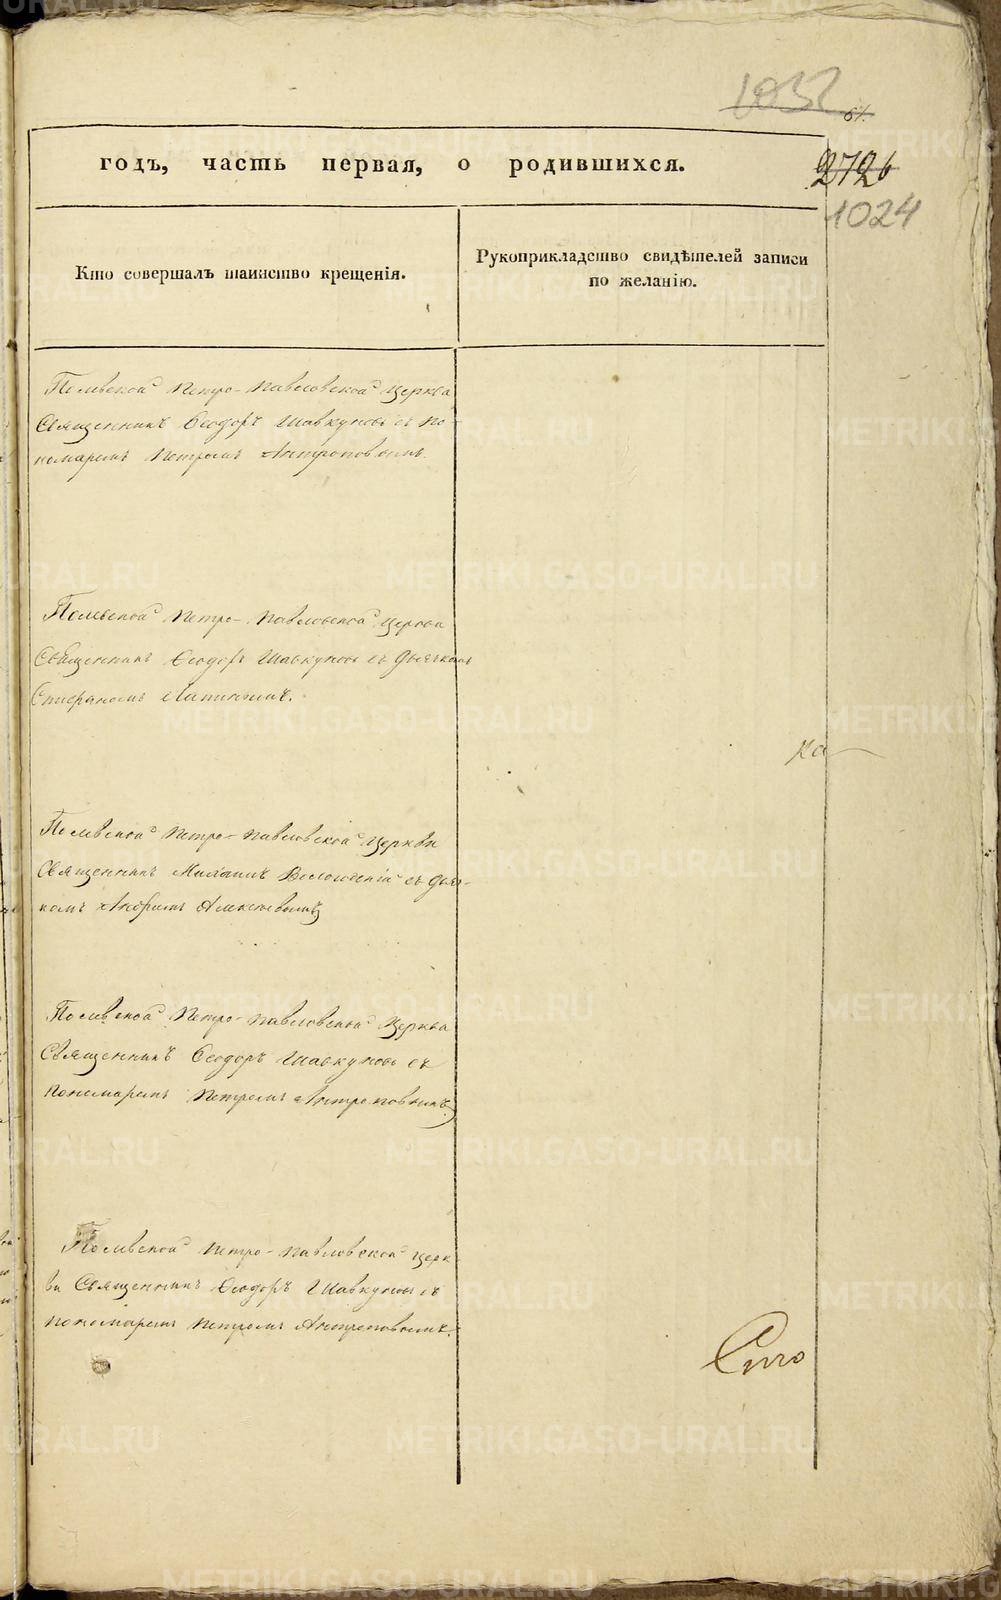 1032
61.
годъ, часть первая, о родившихся.
2726
1024
Кто совершалъ таинство крещенія.
Рукоприкладство свидѣтелей записи
по желанію.
Полевской Петро-Павловской Церкви
Священникъ Ѳеодоръ Шавкуновъ съ По-
номаремъ Петромъ Антроповымъ.
Полевской Петро-Павловской Церкви
Священникъ Ѳеодоръ Шавкуновъ съ Дьячкомъ
Стефаномъ Лапинымъ.
ка
Полевской Петро-Павловской Церкви
Священникъ Михаилъ съ Дьяч-
комъ Андреемъ Алексѣевымъ
Полевской Петро-Павловской Церкви
Священникъ Ѳеодоръ Шавкуновъ съ
Пономаремъ Петромъ Антроповымъ
Полевской Петро-Павловской Церк
ви Священникъ Ѳеодоръ Шавкуновъ съ
пономаремъ Петромъ Антроповымъ.
METRIKI.GASO-URAL.RU